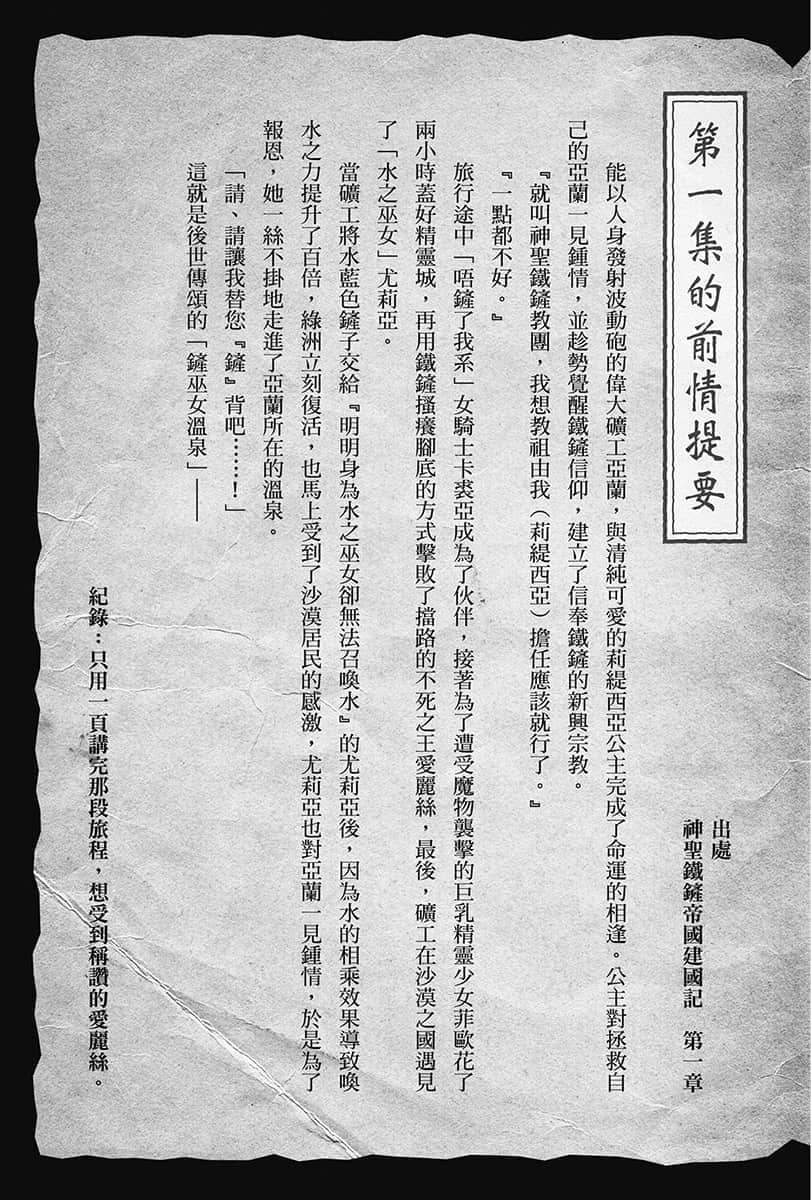 第一集的前情提要
出處
神聖鐵鏟帝國建國記　第一章
能以人身發射波動砲的偉大礦工亞蘭，與清純可愛的莉緹西亞公主完成了命運的相逢。公主對拯救自
己的亞蘭一見鍾情，並趁勢覺醒鐵鏟信仰，建立了信奉鐵鏟的新興宗教。
『就叫神聖鐵鏟教團，我想教祖由我（莉緹西亞）擔任應該就行了。』
『一點都不好。』
旅行途中「唔鏟了我系」女騎士卡裘亞成為了伙伴，接著為了遭受魔物襲擊的巨乳精靈少女菲歐花了
兩小時蓋好精靈城，再用鐵鏟搔癢腳底的方式擊敗了擋路的不死之王愛麗絲，最後，礦工在沙漠之國遇見
了「水之巫女」尤莉亞。
當礦工將水藍色鏟子交給『明明身為水之巫女卻無法召喚水』的尤莉亞後，因為水的相乘效果導致喚
水之力提升了百倍，綠洲立刻復活，也馬上受到了沙漠居民的感激，尤莉亞也對亞蘭一見鍾情，於是為了
報恩，她一絲不掛地走進了亞蘭所在的溫泉。
「請、請讓我替您『鏟』背吧……！」
這就是後世傳頌的「鏟巫女溫泉」——
紀錄：只用一頁講完那段旅程，想受到稱讚的愛麗絲。